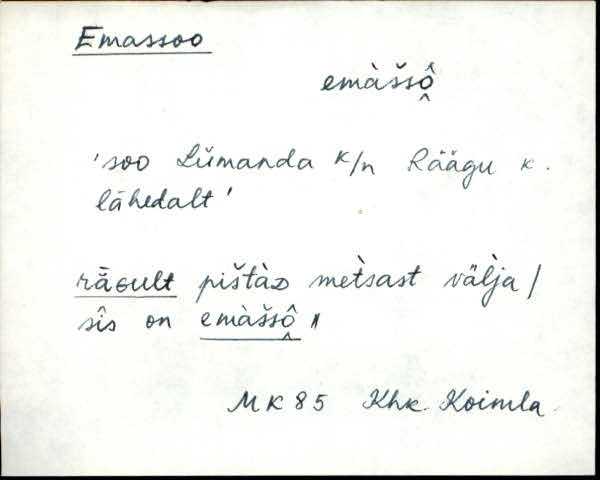 Emassoo
emàšsô̭
'soo Lümanda k/n Räägu k.
lähedalt'
rǟGult pištàD metsast välja /
sîs on emàšsô̭ //
MK 85 Khk. Koimla